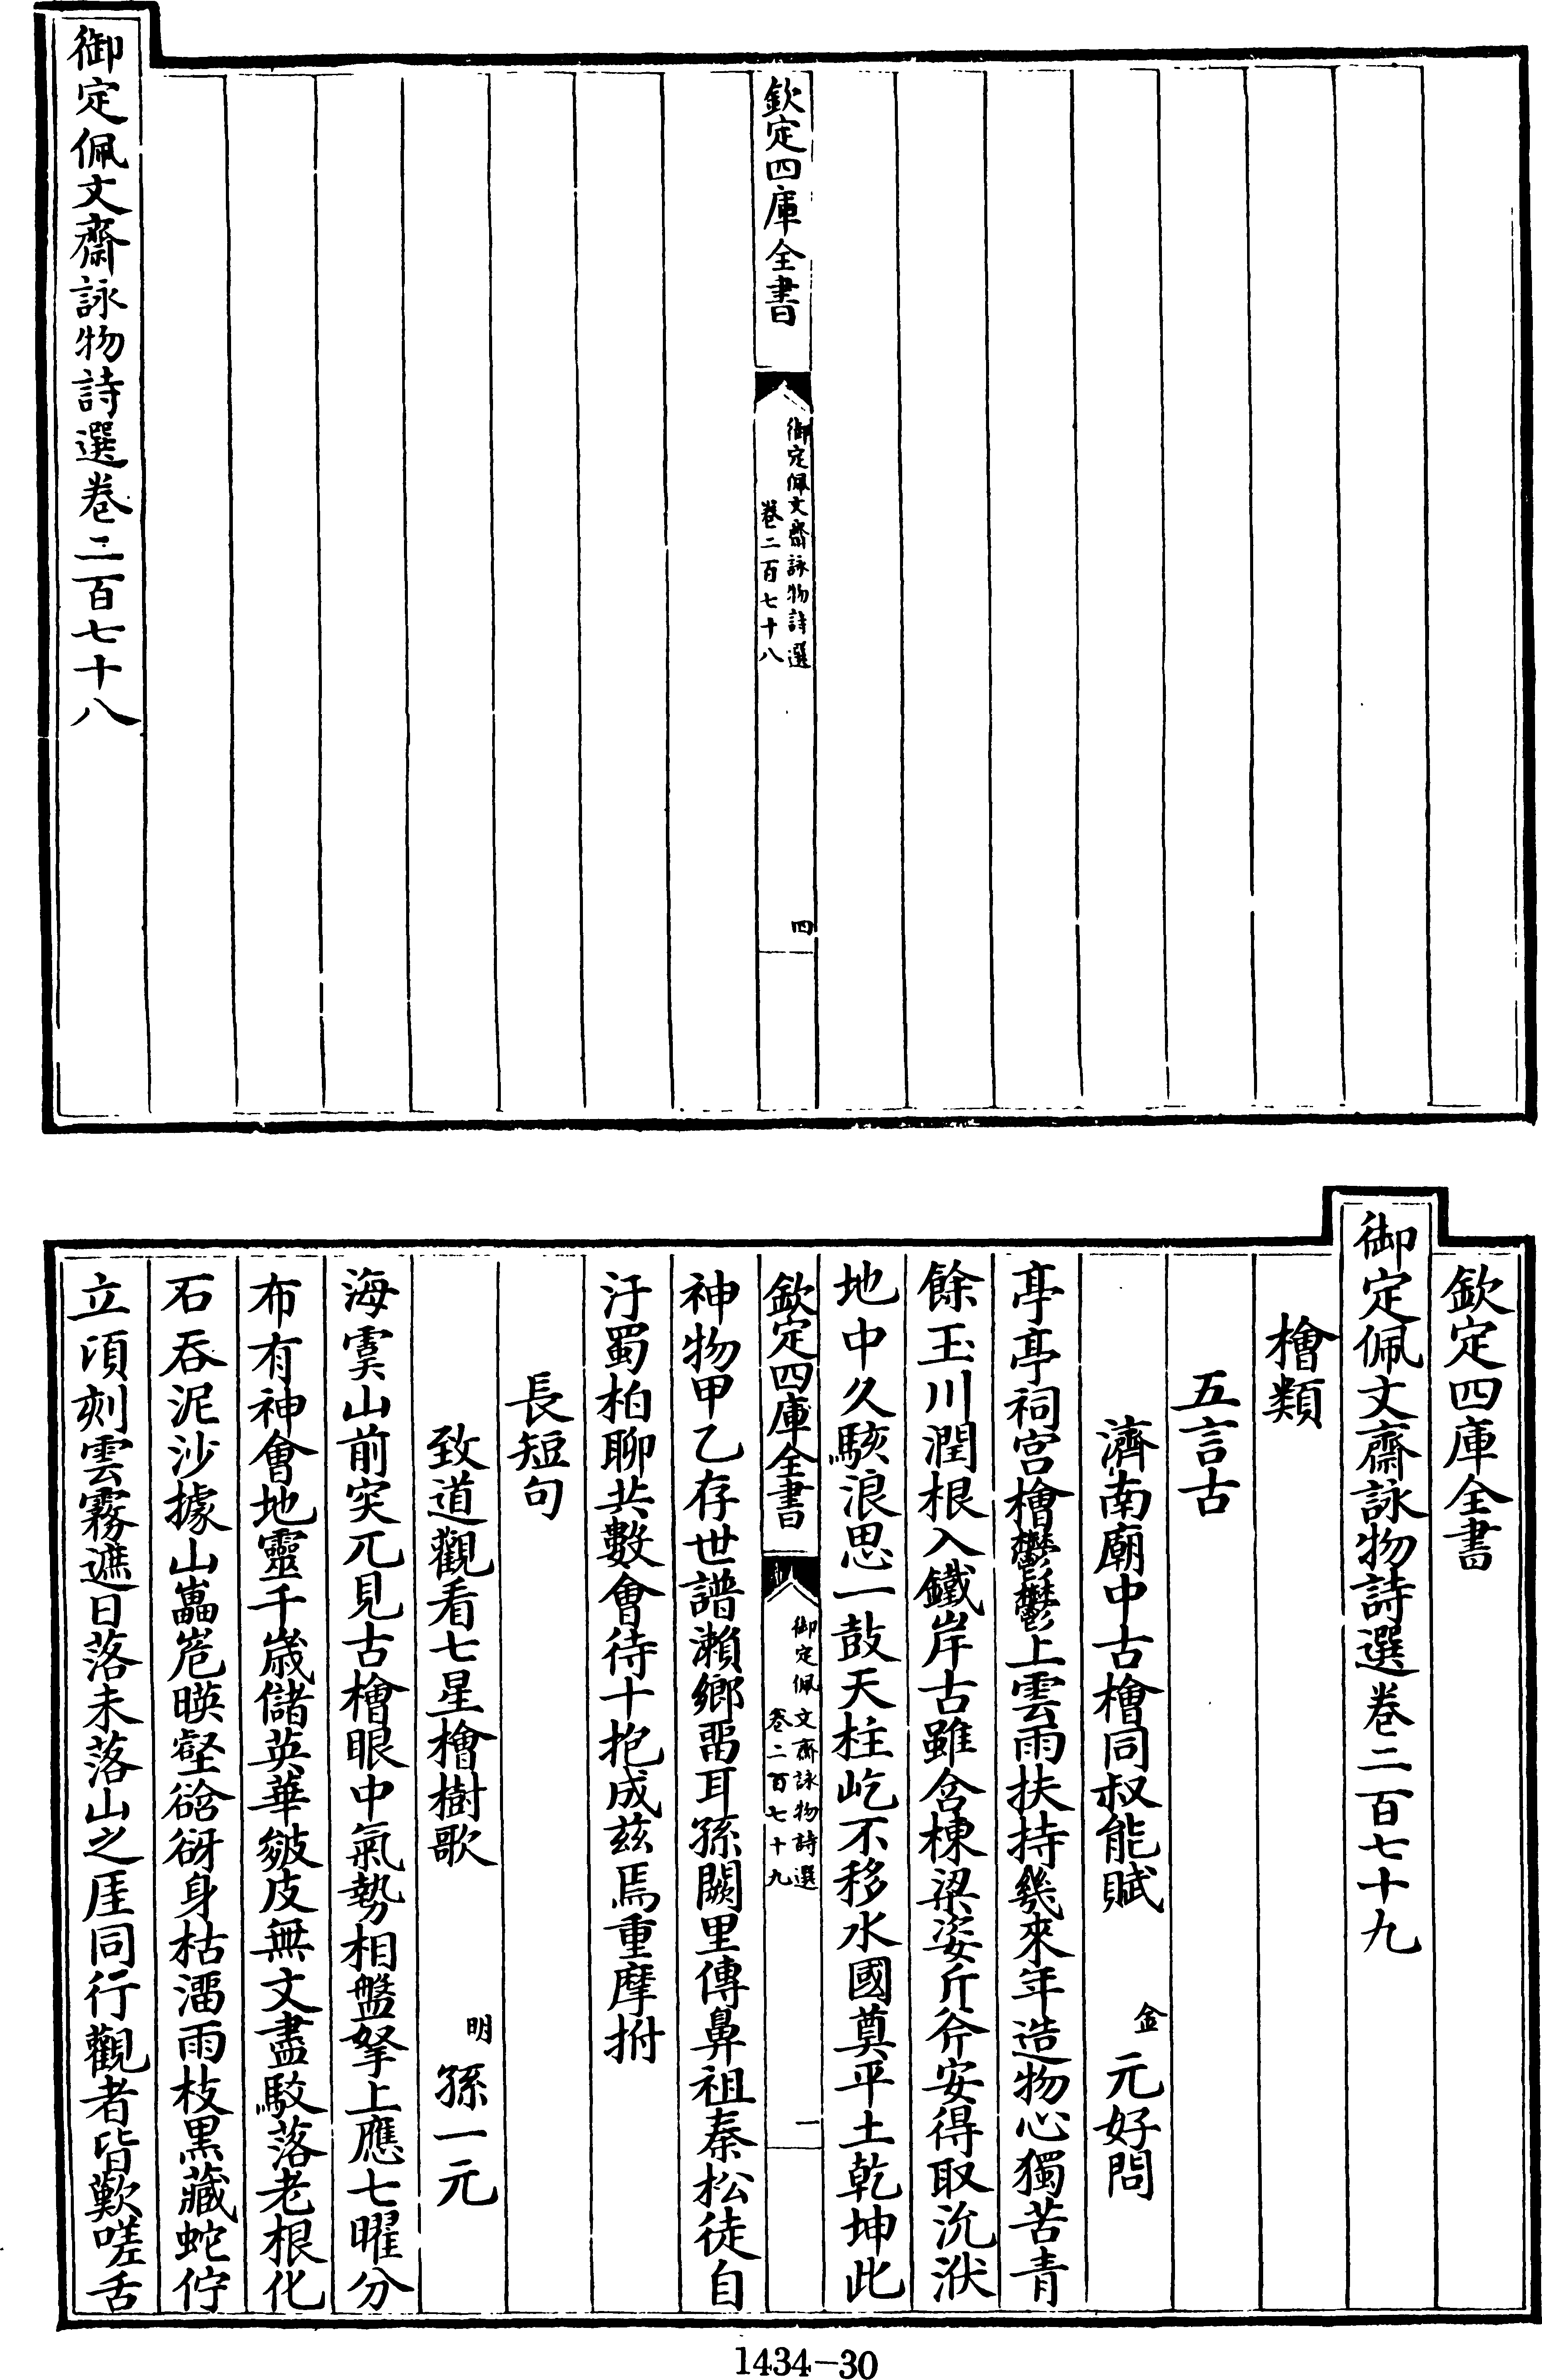 欽定四庫全書
御定佩文齋詠物詩選
卷二百七十八
四
御定佩文齋詠物詩選卷二百七十八
欽定四庫全書
御定佩文齋詠物詩選卷二百七十九
檜類
五言古
濟南廟中古檜同叔能賦 金 元好問
亭亭祠宫檜鬱鬱上雲雨扶持幾來年造物心獨苦青
餘玉川潤根入鐵岸古雖含棟梁姿斤斧安得取沇洑
地中久駭浪思一鼓天柱屹不移水國奠平土乾坤此
欽定四庫全書
御定佩文齋詠物詩選
卷二百七十九
一
神物甲乙存世譜瀨鄉畱耳孫闕里傳鼻祖秦松徒自
汙蜀柏聊共數會待十抱成兹焉重摩拊
長短句
致道觀看七星檜樹歌 明 孫一元
海虞山前突兀見古檜眼中氣勢相盤拏上應七曜分
布有神會地靈千歲儲英華皴皮無文盡駮落老根化
石吞泥沙據山巀嵬暎壑谽谺身枯溜雨枝黒藏蛇佇
立須刻雲霧遮日落未落山之厓同行觀者皆歎嗟舌
1434-30